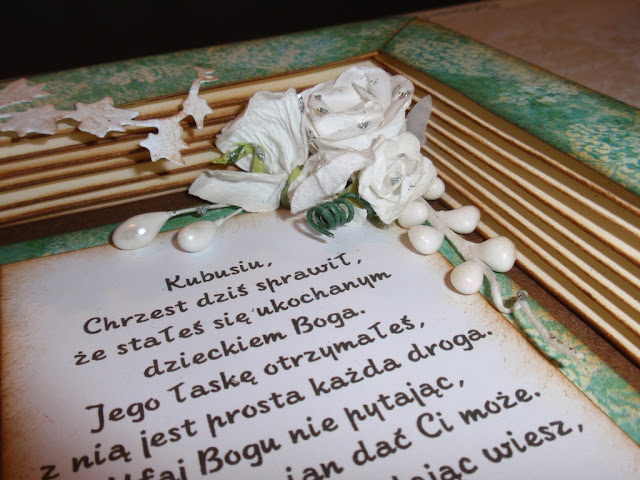 Kubusiu,
Chrzest dziś sprawił,
że stałeś się ukochanym
dzieckiem Boga.
Jego łaskę otrzymałeś,
z nią jest prosta każda droga.
Bogu nie pytając,
dać Ci może.
wiesz,